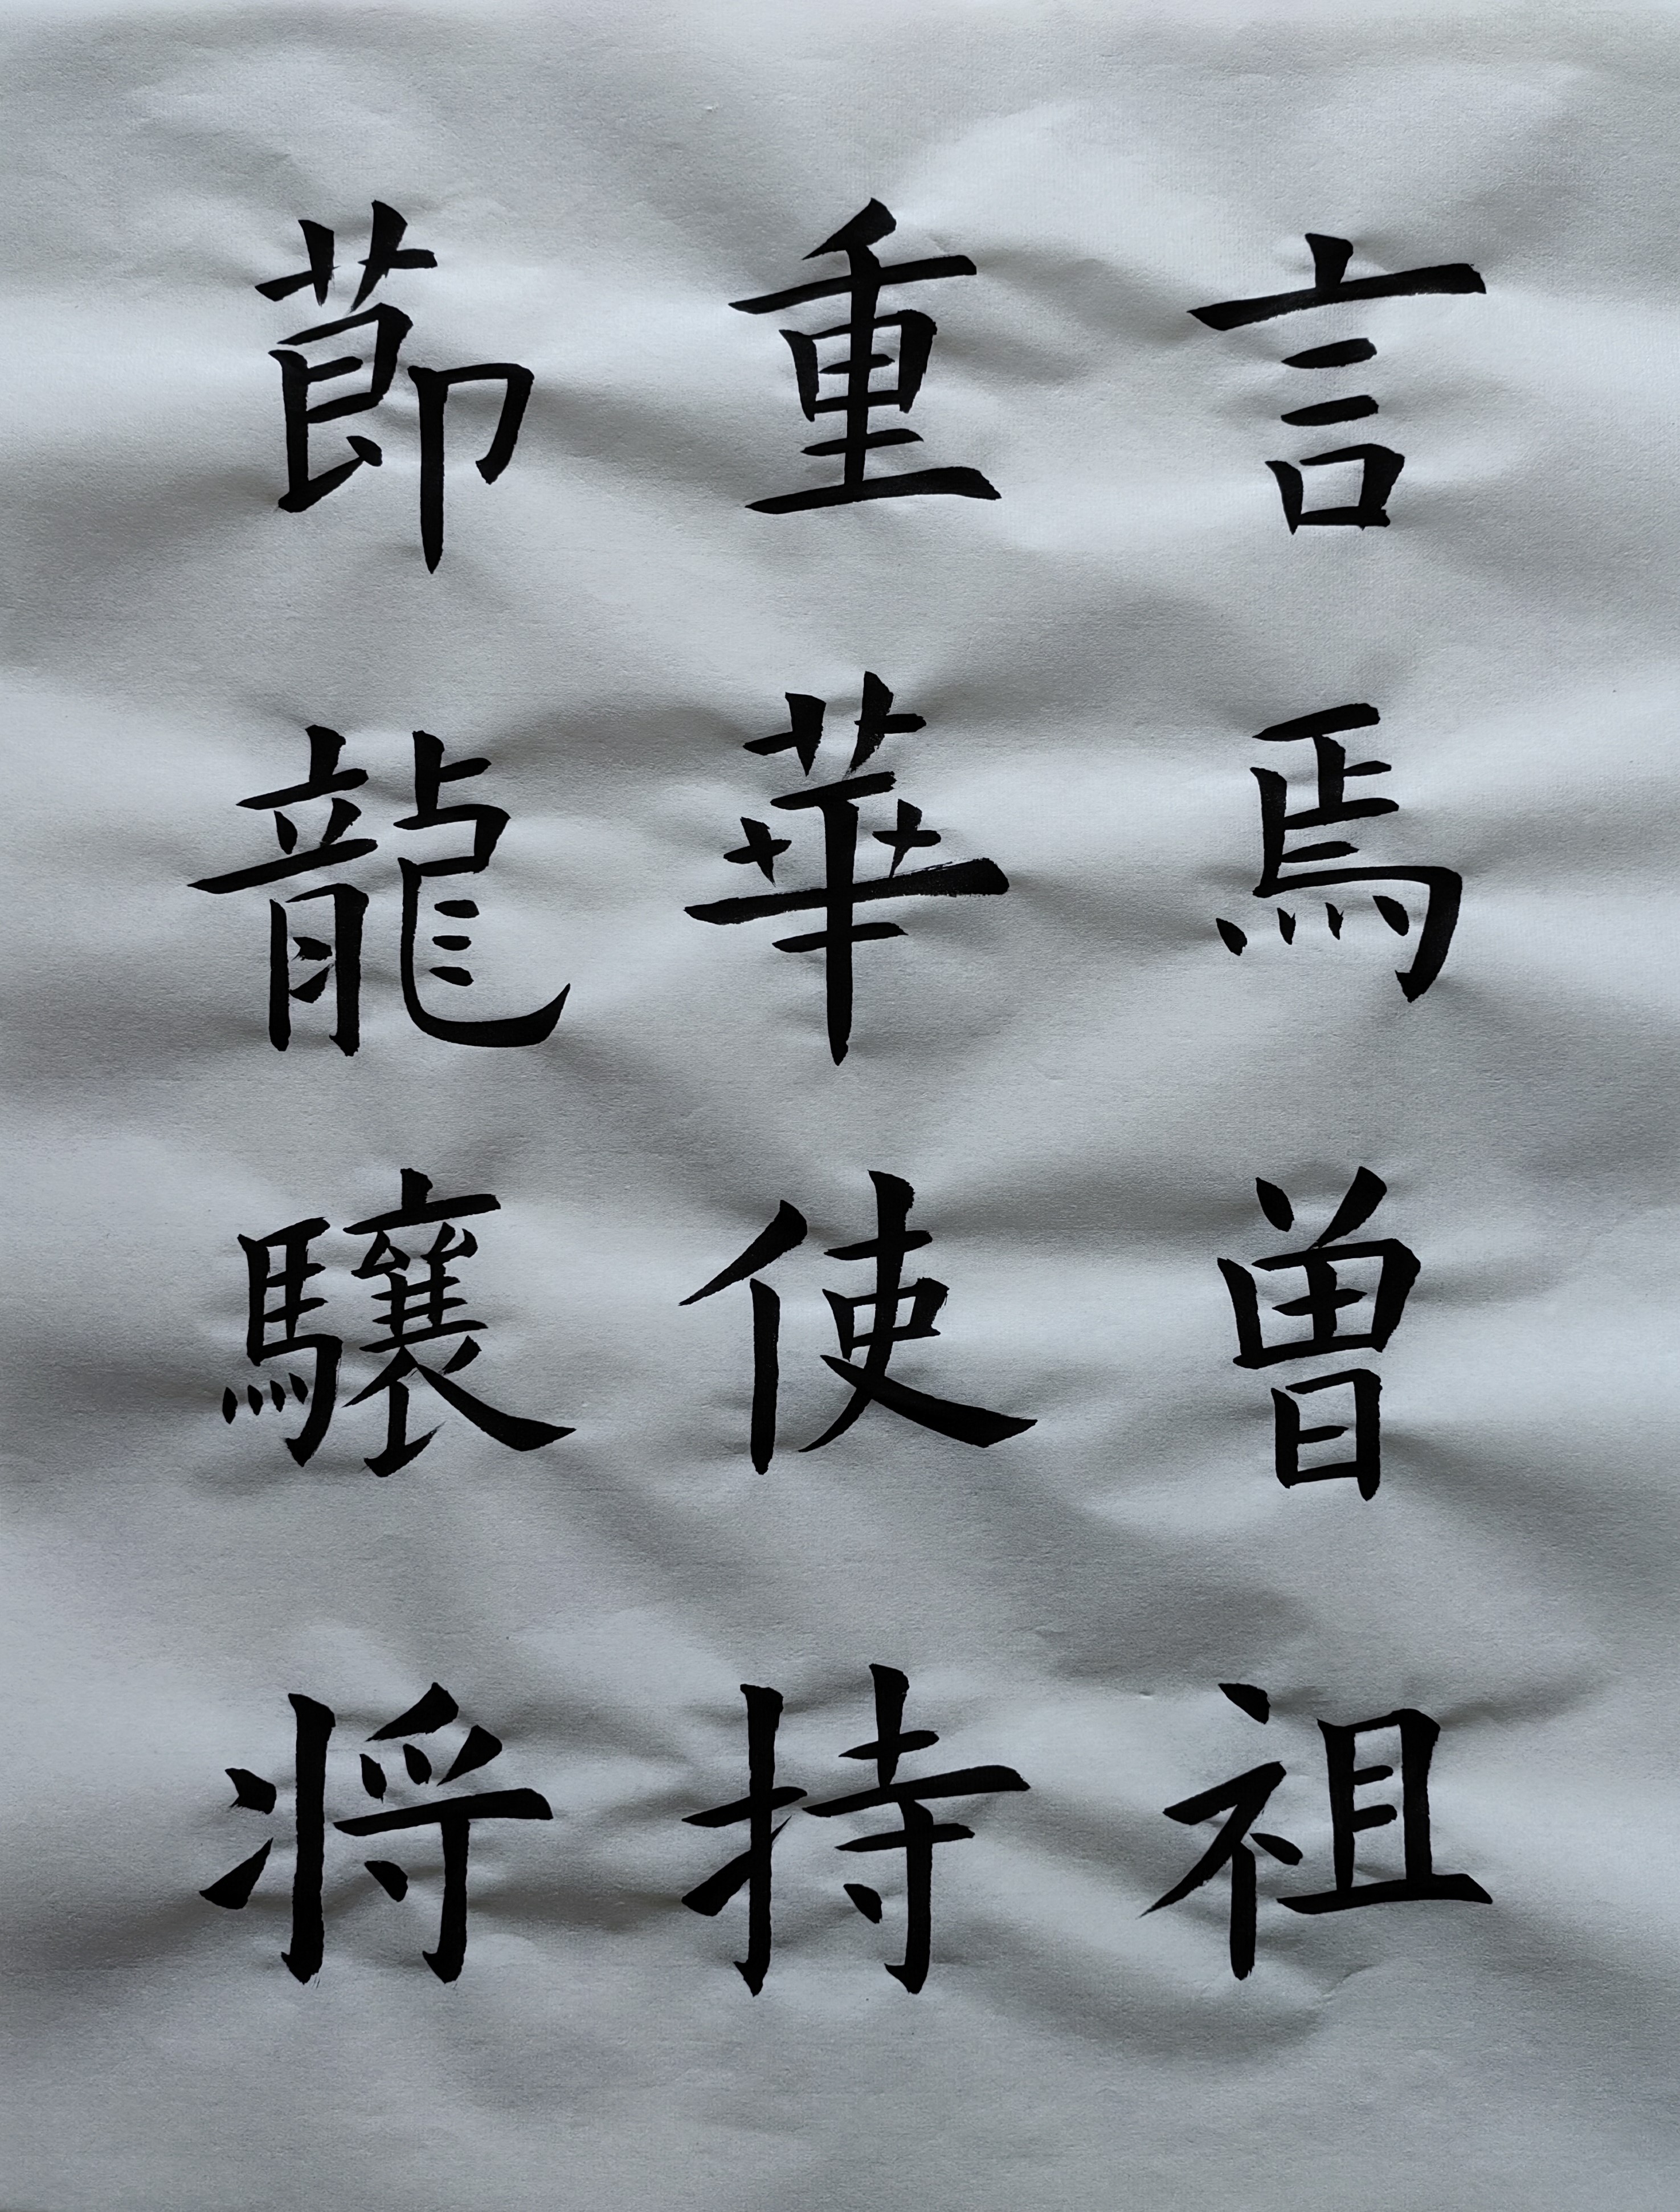 言焉曾祖
重華使持
莭龍驤将